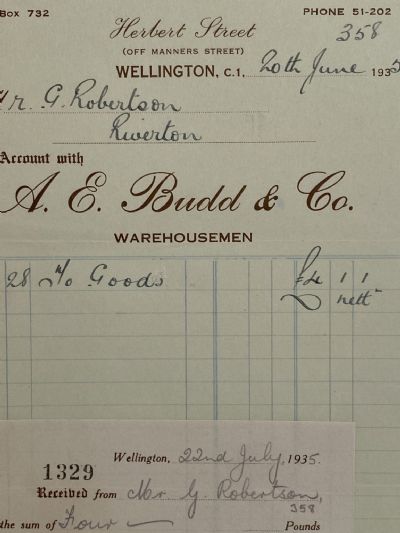 Box 732 PHONE 51-202
Herbert Street 358
(OFF MANNERS STREET)
WELLINGTON, C.1. 20th June 1935
Mr. G. Robertson
Riverton
Account with
A. E. Budd & Co.
WAREHOUSEMEN
28 To Goods £4 1 1
nett
Wellington, 22nd July, 1935.
1329
Received from Mr G. Robertson,
358
the sum of Four — Pounds